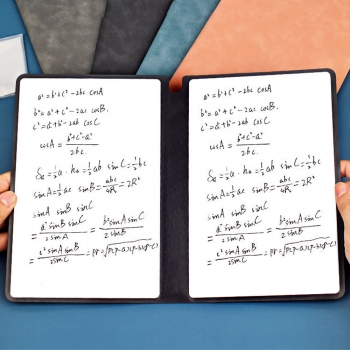 a² = b² + c² - 2bc cosA
b² = a² + c² - 2ac cosB.
c² = a² + b² - 2ab cosC
cosA = (b² + c² - a²) / 2bc.
= ½a · ha = ½ab sinC = ½bc
sinA = ½ac sinB = abc/4R = 2R²
sinA sinB sinC
= a² sinB sinC / 2 sinA = b² sinA sinC / 2 sinB
= c² sinA sinB / 2 sinC = pr = √p(p-a)(p-b)(p-c)
a² = b² + c² - 2bc cosA
b² = a² + c² - 2ac cosB.
c² = a² + b² - 2ab cosC
cosA = (b² + c² - a²) / 2bc.
= ½a · ha = ½ab sinC = ½bc
sinA = ½ac sinB = abc/4R = 2R²
sinA sinB sinC
= a² sinB sinC / 2 sinA = b² sinA sinC / 2 sinB
= c² sinA sinB / 2 sinC = pr = √p(p-a)(p-b)(p-c)